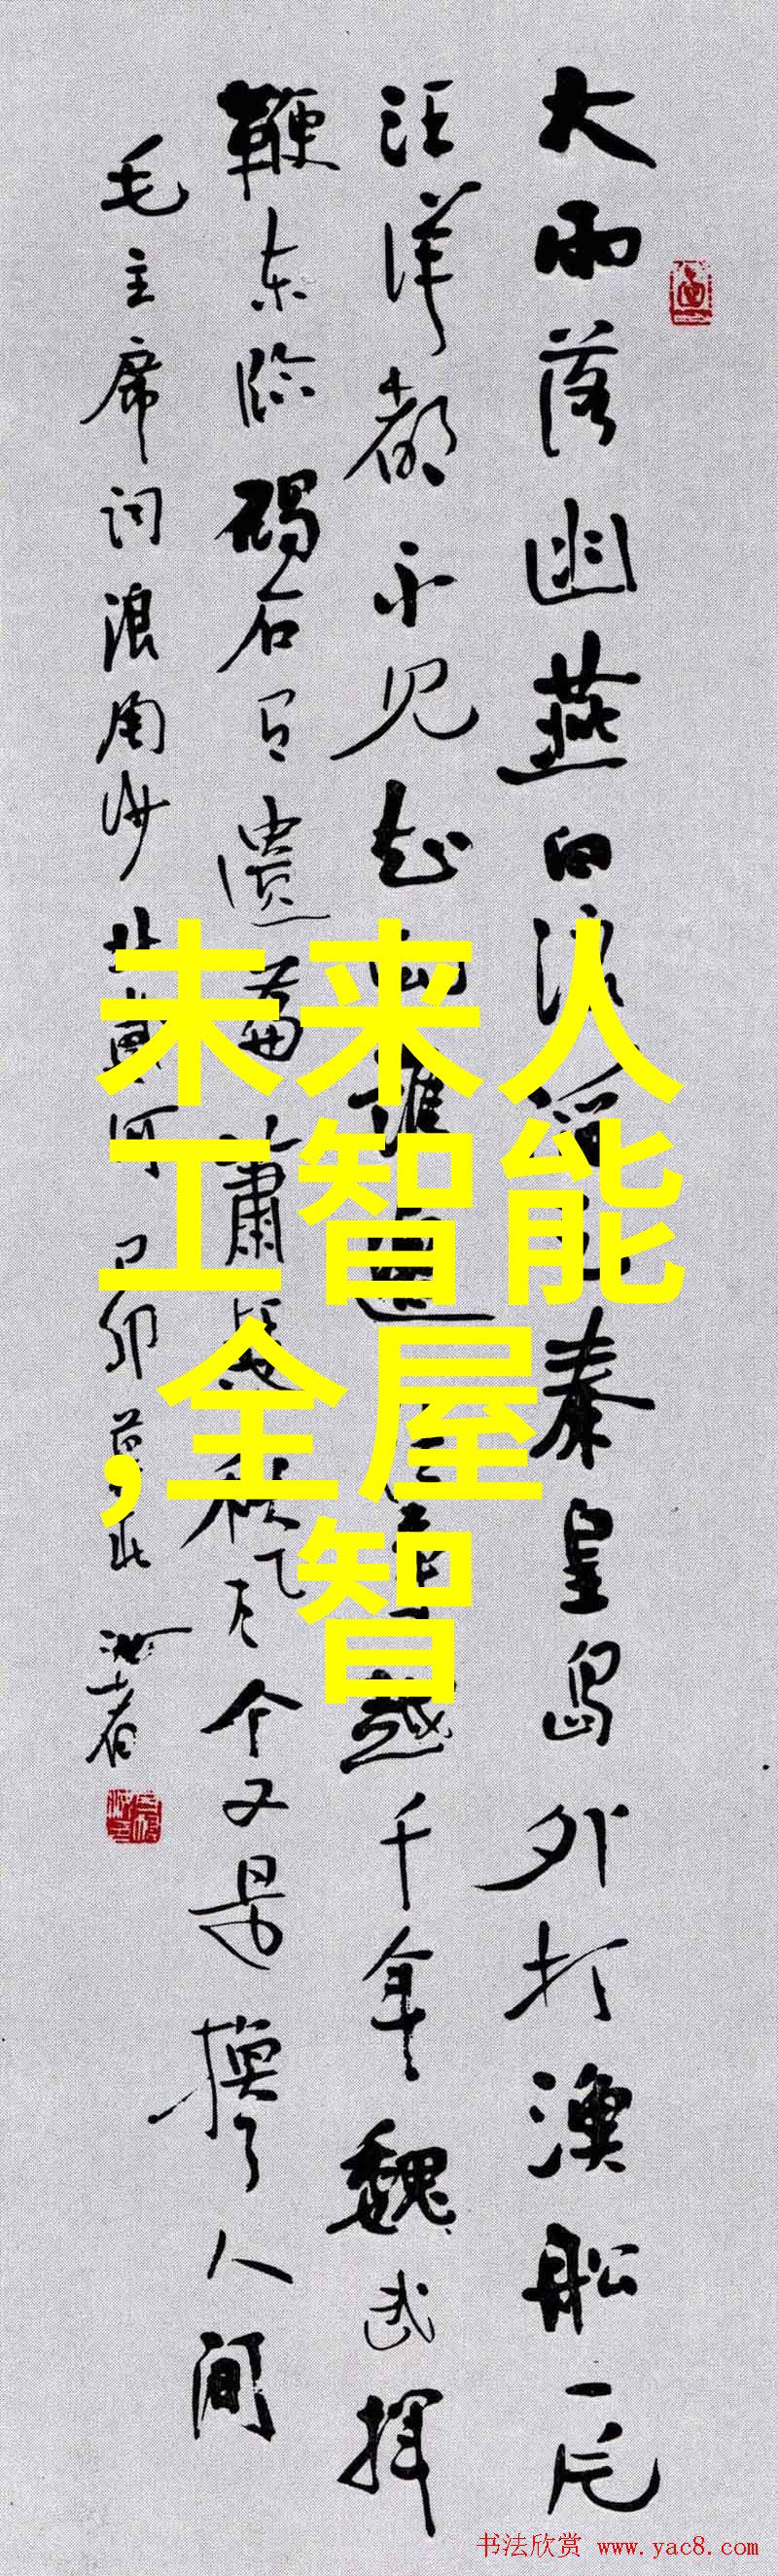 大雨落幽燕白浪滔天秦皇岛外打漁船一片
汪洋都不见知向誰边往事越千年魏武挥
鞭东临碣石有遗篇萧瑟秋风今又是换了人间
毛主席词浪淘沙北戴河 己卯
未来人
工智能
,全屋
智
书法欣赏 www.yac8.com